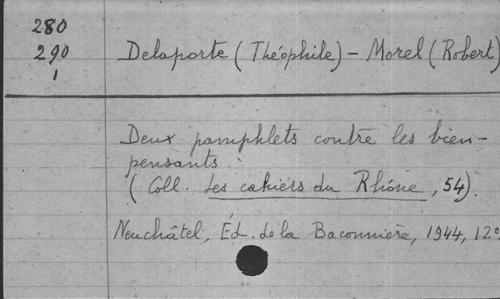 280
290
1
Delaporte (Théophile) - Morel (Robert)
Deux pamphlets contre les bien-
pensants.
(Coll. Les cahiers du Rhône, 54).
Neuchâtel, Éd. de la Baconnière, 1944, 12°